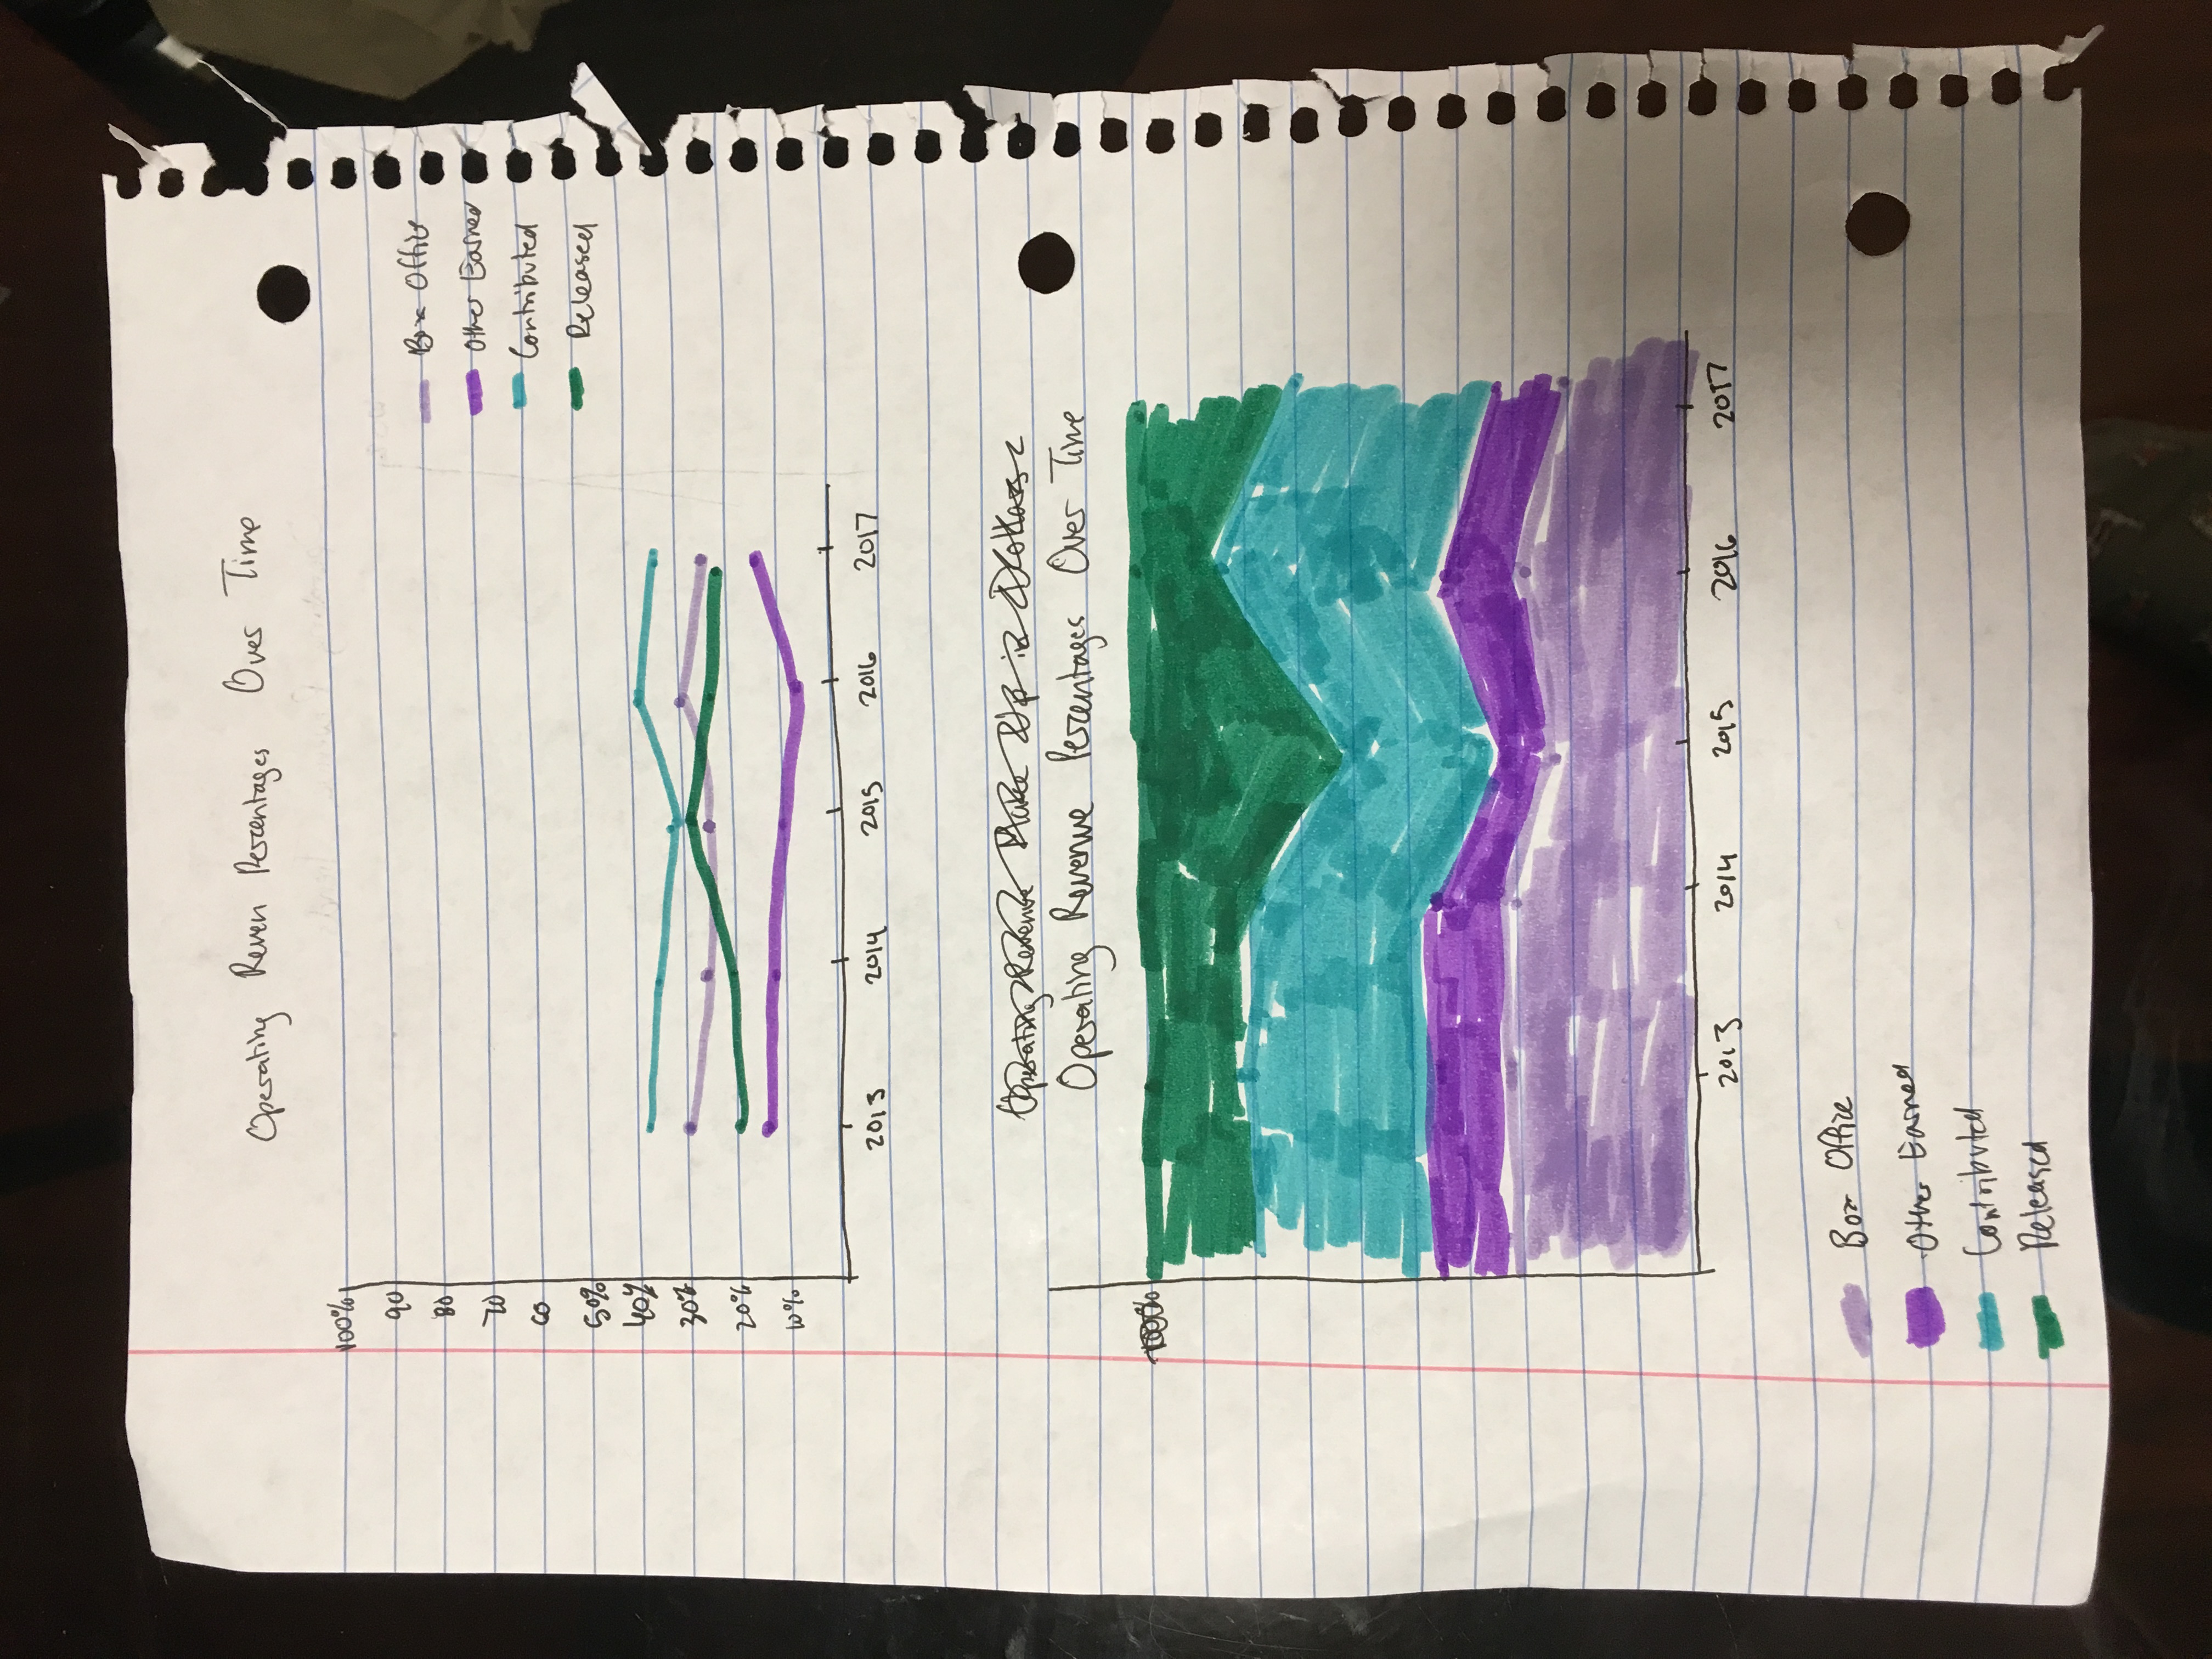 Operating Reven Percentages Over Time
100%
90
80
70
60
50%
40%
30%
20%
10%
Box Office
Other Earned
Contributed
Released
2013 2014 2015 2016 2017
Operating Revenue Make Up in Dollars
Operating Revenue Percentages Over Time
100%
2013 2014 2015 2016 2017
Box Office
Other Earned
Contributed
Released